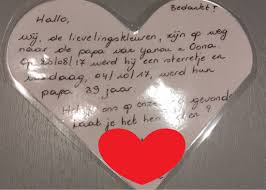 Bedankt!
Hallo,
Wij, de lievelingskleuren, zijn op weg
naar de papa van Yanou & Oona.
Op 20/08/17 werd hij een sterretje en
vandaag, 04/10/17, werd hun
papa 39 jaar.
Heb ons op gevonden
Laat je het hen ?